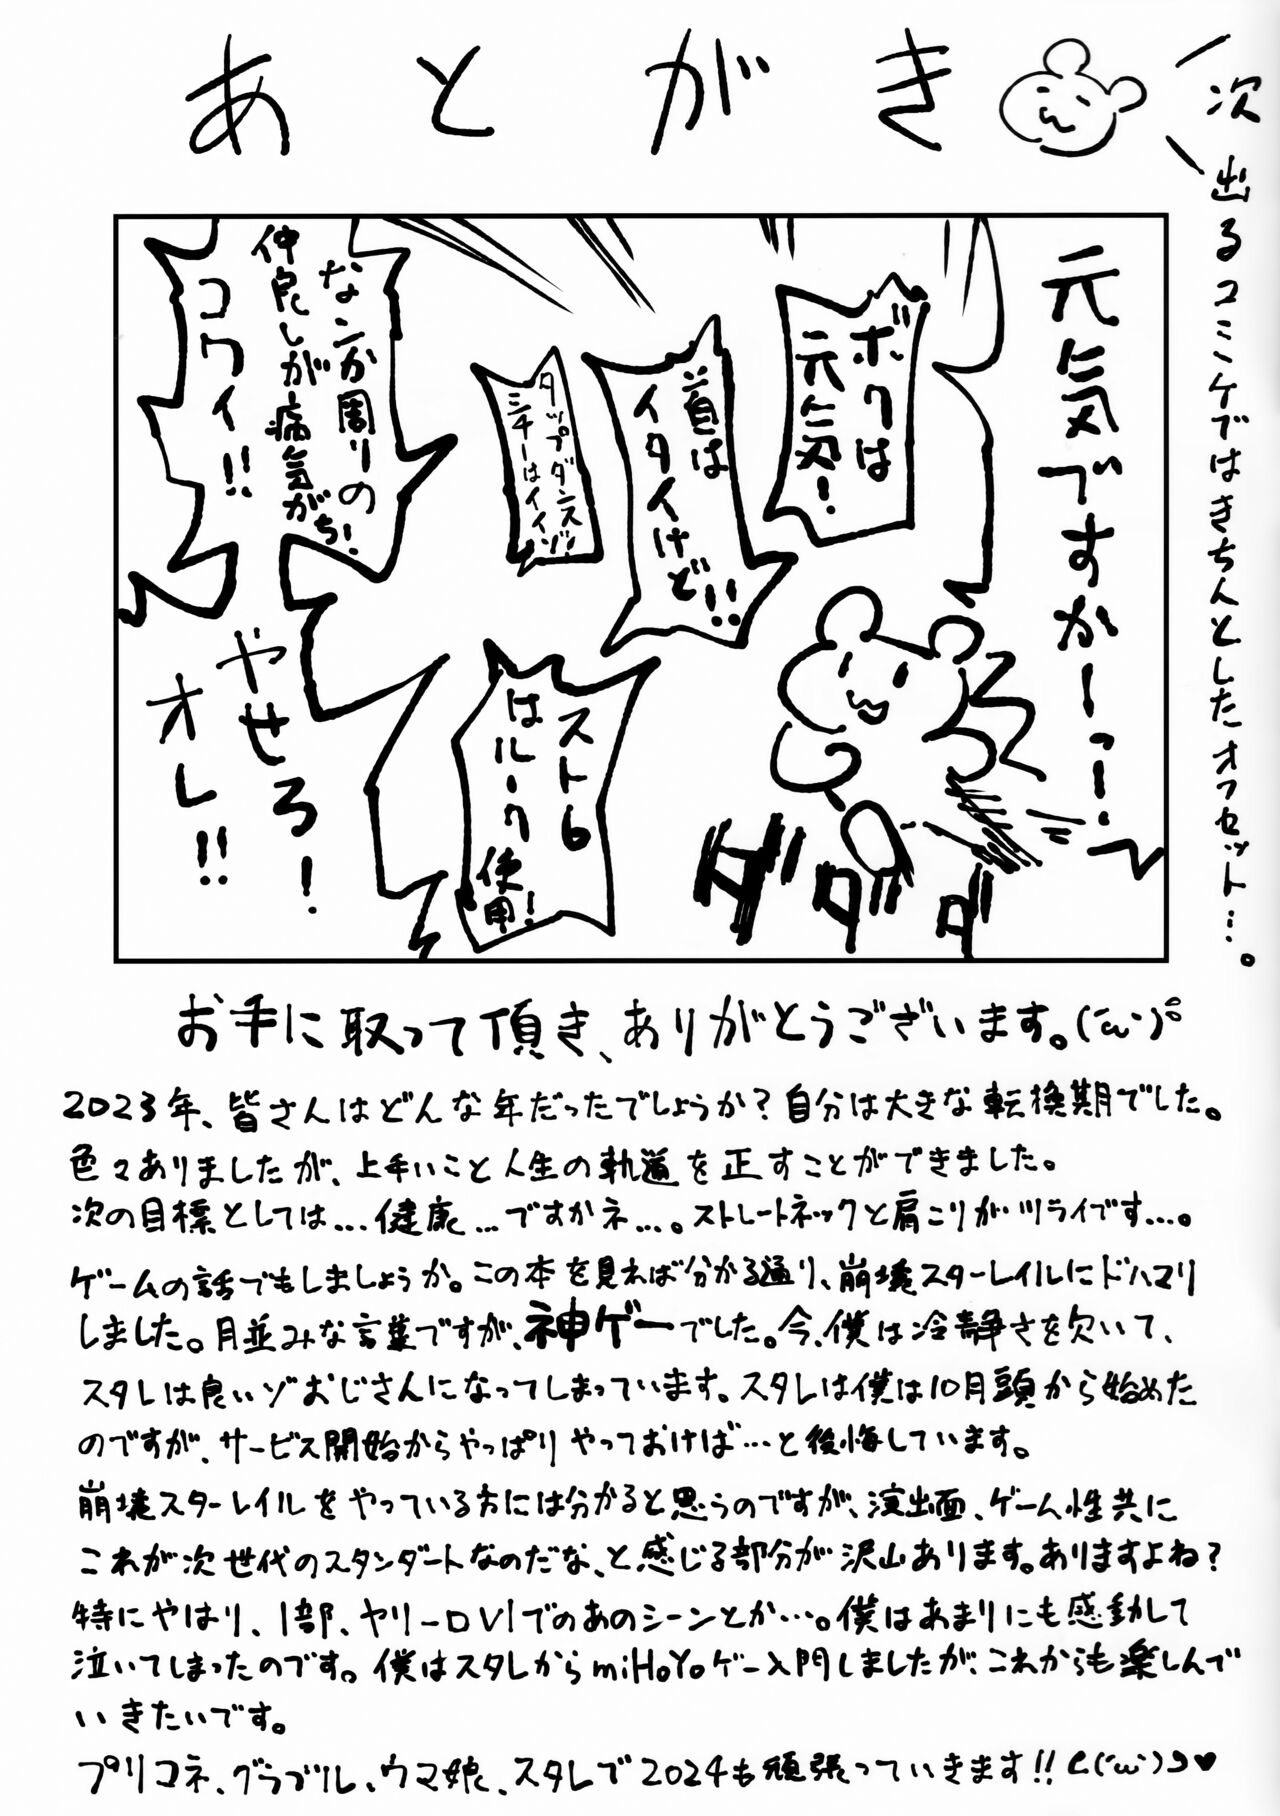 あとがき
次出るコミケではきちんとしたオフセット…。
元気ですかーっ！
ボクは
元気！
首は
イタイけど!!
タップダンス
シチーはイイゾ!
なンか周りの
仲良しが病気がち!
コワイ!!
やせろ!
オレ!!
スト6
はルーク
使用!
ダダダダ
お手に取って頂き、ありがとうございます。(´ω`)
2023年、皆さんはどんな年だったでしょうか?自分は大きな転換期でした。
色々ありましたが、上手いこと人生の軌道を正すことができました。
次の目標としては…健康…ですかネ…。ストレートネックと肩こりがツライです…。
ゲームの話でもしましょうか。この本を見れば分かる通り、崩壊スターレイルにドハマリ
しました。月並みな言葉ですが、神ゲーでした。今、僕は冷静さを欠いて、
スタレは良いゾおじさんになってしまっています。スタレは僕は10月頭から始めた
のですが、サービス開始からやっぱりやっておけば…と後悔しています。
崩壊スターレイルをやっている方には分かると思うのですが、演出面、ゲーム性共に
これが次世代のスタンダートなのだな、と感じる部分が沢山あります。ありますよね?
特にやはり、1部、ヤリーロVIでのあのシーンとか…。僕はあまりにも感動して
泣いてしまったのです。僕はスタレからmiHoYoゲー入門しましたが、これからも楽しんで
いきたいです。
プリコネ、グラブル、ウマ娘、スタレで2024も頑張っていきます!!⊂(´ω`)⊃♥